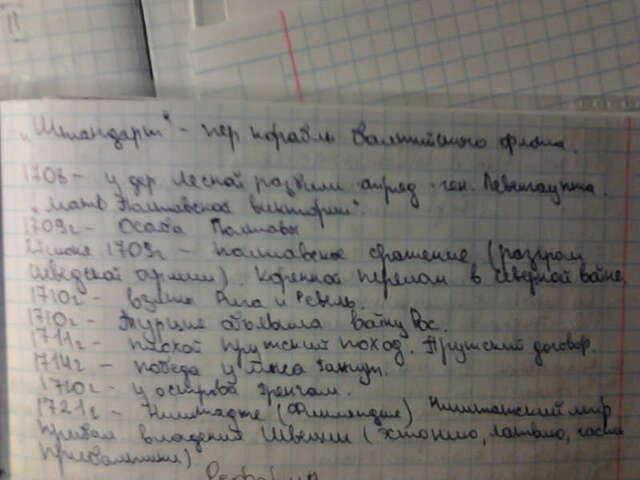 "Штандарт" - пер корабль Балтийского флота.
1708 - у дер Лесной разбили отряд ген. Левенгаупта.
"мать Полтавской виктории".
1709г - Осада Полтавы
27 июня 1709г - полтавское сражение (разгром
шведской армии). Коренной перелом в северной войне
1710г - взятие Рига и Ревель.
1710г - Турция объявила войну Рос.
1711г - прутский поход. Прутский договор.
1714г - победа у мыса Гангут.
1720г - у острова Гренгам.
1721г - Ништадте (Финляндия) Ништадский мир
владения Швеции (Эстонию, Латвию, часть